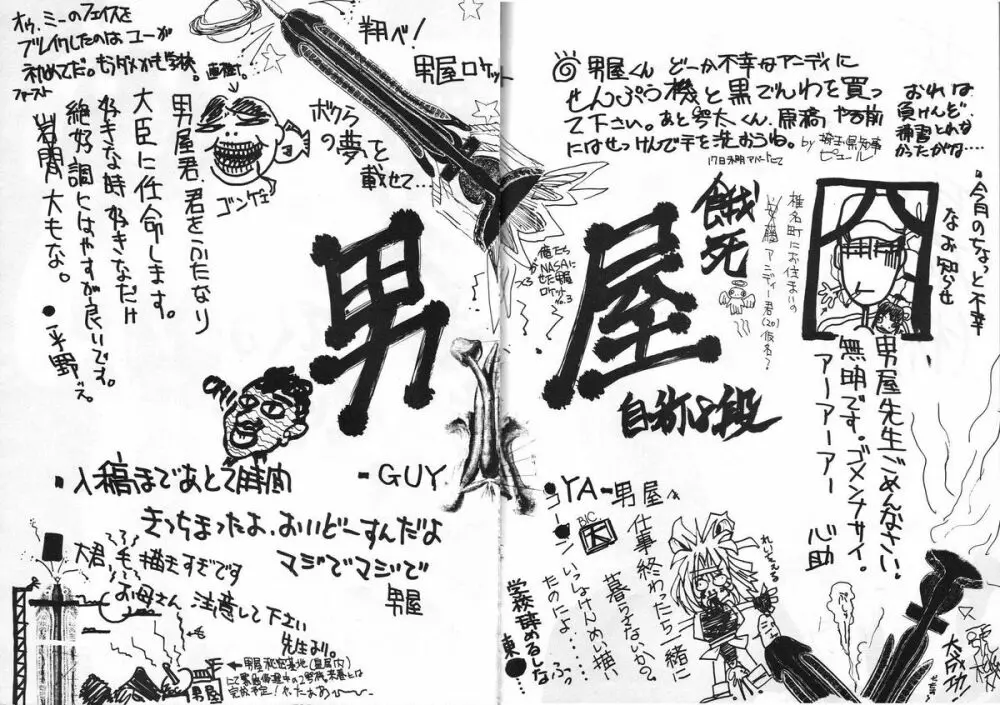 オゥ、ミーのフェイスを
ブレイクしたのはユーが
初めてだ。もうダメかも学校。
ファースト
直樹。
男屋君、君をふたなり
大臣に任命します。
好きな時好きなだけ
絶好調にはやすが良いです。
岩間大もな。
●平野
ゴンゲェ
翔べ!
男屋ロケット
ボクら
の夢を
載せて…
◎男屋くん どーか不幸なアニーディに
せんぷう機と黒でんわを買っ
て下さい。あと
原稿やる前
にはせっけんで手を洗おうね。
by 埼玉県知事
ピエール
おれは
負けんど、
補習とれな
かったがな…
・今月のちょっと不幸
なお知らせ
餓死
椎名町にお住まいの
安藤アンディー君(20)
仮名?
俺たち
NASAに
男屋
ロケット
No.3
男屋
自称8段
男屋先生ごめんなさい。
無明です。ゴメンナサイ。
アーアーアー
心助
・GUY
・YA-男屋
・入稿まであと2時間
きっちまったよ、おいどーすんだよ
マジでマジで
男屋
大君、毛描きすぎです
お母さん、注意して下さい
先生より。
←男屋秘密基地(皇居内)
にて
2号機、来春
完成予定!
男屋
BIC
仕事終わったら一緒に
暮らさないか。
いっしょけんめい描い
たのによ……
学校辞めるしな
東●
大成功!!